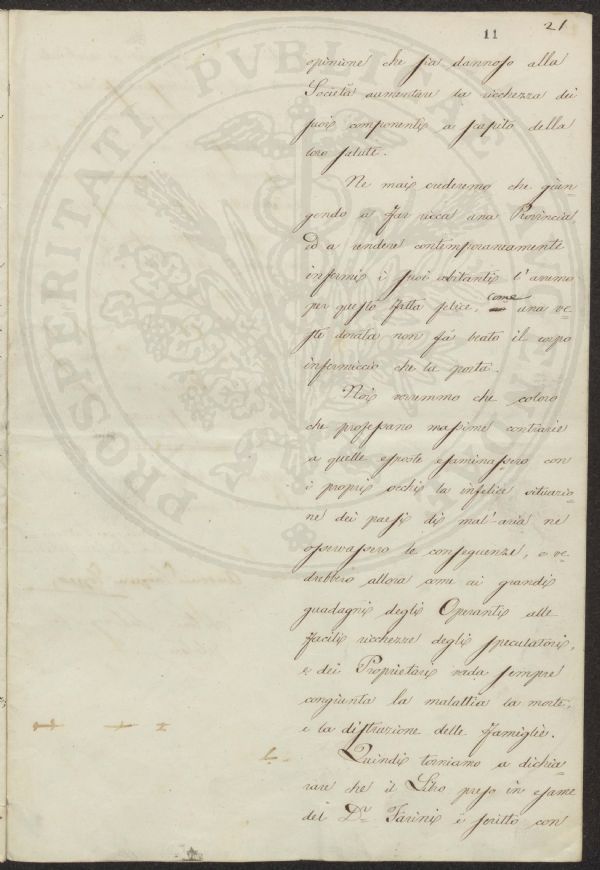 11
21
opinione che sia dannoso alla
Società aumentare la ricchezza dei
suoi componenti a scapito della
loro salute.
Nè mai crederemo che giun
gendo a far ricca una Provincia
ed a rendere contemporaneamente
infermi i suoi abitanti l'avremo
per questo fatta felice, come una ve=
ste dorata non fà beato il corpo
infermiccio che la porta.
Noi vorremmo che coloro
che professano massime contrarie
a quelle esposte esaminassero con
i propri occhi la infelice situazio=
ne dei paesi di mal'-aria ne
osservassero le conseguenze, e ve=
drebbero allora come ai grandi
guadagni degli Operanti alle
facili ricchezze degli speculatori,
e dei Proprietari vada sempre
congiunta la malattia la morte,
e la distruzione delle famiglie.
Quindi torniamo a dichia=
rare che il Libro preso in esame
del Dr. Farini è scritto con
PROSPERITATI PUBLICAE